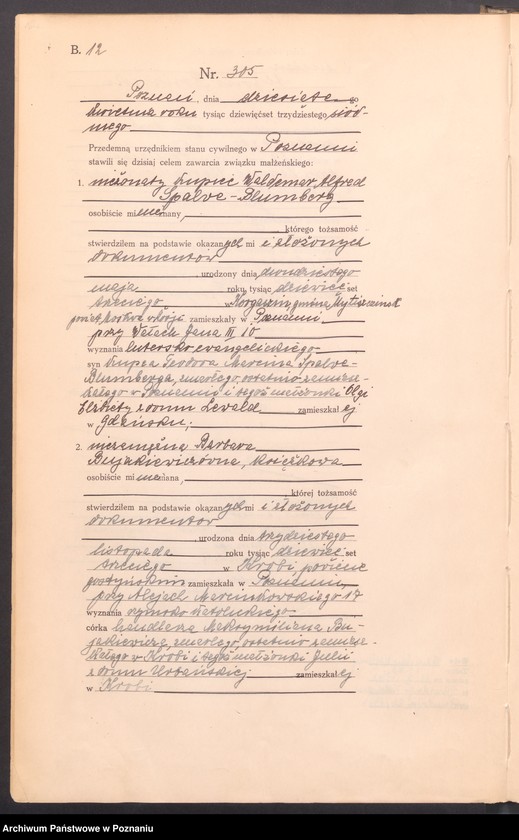 B. 12
Nr. 305
Poznań, dnia dziesiątego
kwietnia roku tysiąc dziewięćset trzydziestego siód-
mego
Przedemną urzędnikiem stanu cywilnego w Poznaniu
stawili się dzisiaj celem zawarcia związku małżeńskiego:
1. nieżonaty kupiec Waldemar Alfred
Spalve-Blumberg
osobiście mi nieznany,
którego tożsamość
stwierdziłem na podstawie okazanych mi i złożonych
dokumentów
, urodzony dnia dwudziestego
maja roku tysiąc dziewięćset
trzeciego w gmina
zamieszkały w Poznaniu
przy Wałach Jana III 10
wyznania lutersko ewangelickiego
syn kupca Teodora Marcina Spalve-
Blumberga, zmarłego, ostatnio zamiesz-
kałego w Poznaniu i tegoż małżonki Olgi
Elżbiety z domu Lewald zamieszkałej
w Gdańsku;
2. niezamężna Barbara
Bujakiewiczówna, książkowa
osobiście mi nieznana,
, której tożsamość
stwierdziłem na podstawie okazanych mi i złożonych
dokumentów
, urodzona dnia trzydziestego
listopada roku tysiąc dziewięćset
trzeciego w Krobi, powiecie
gostyńskim zamieszkała w Poznaniu,
przy Alejach Marcinkowskiego 17
wyznania rzymsko katolickiego
córka handlarza Maksymiliana Bu-
jakiewicza, zmarłego, ostatnio zamiesz-
kałego w Krobi i tegoż małżonki Julii
z domu Urbańskiej zamieszkałej
w Krobi
Archiwum Państwowe w Poznaniu